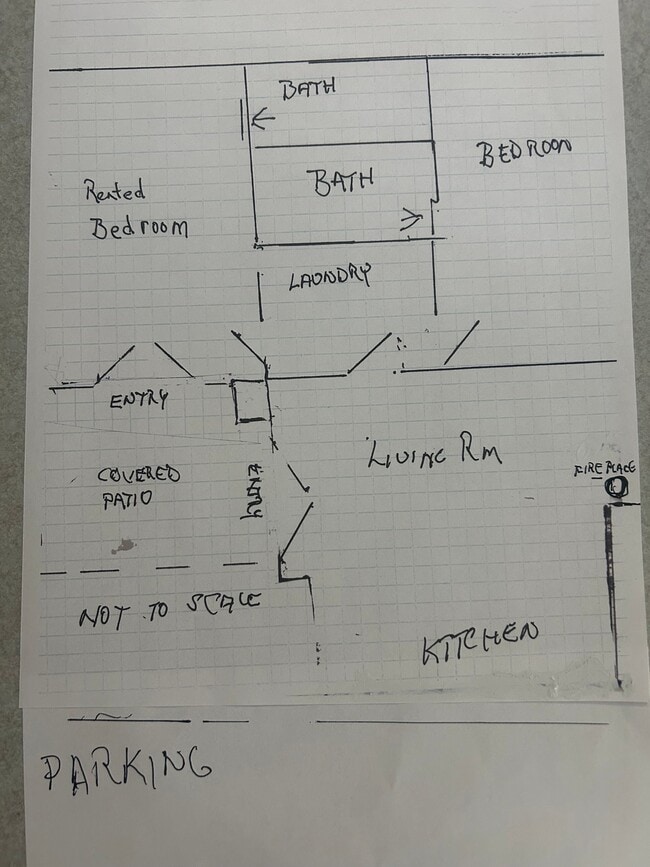 BATH
BEDROOM
BATH
Rented
Bedroom
LAUNDRY
ENTRY
LIVING RM
FIREPLACE
COVERED
PATIO
ENTRY
NOT TO SCALE
KITCHEN
PARKING